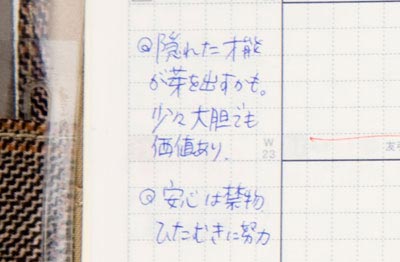 ◎隠れた才能
が芽を出すかも。
少々大胆でも
価値あり.
W
23
友引
◎安心は禁物
ひたむきに努力